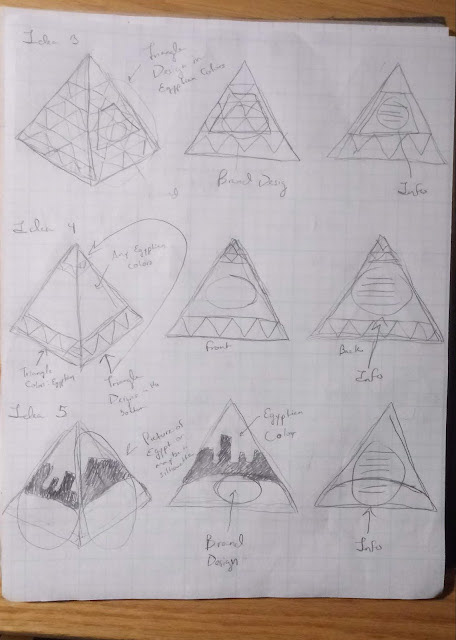 Idea 3
Triangle
Design in
Egyptian Colors
Brand Desig
Info
Idea 4
Any Egyptian
colors
Triangle
Color - Egyptian
Triangle
Designs in the
bottom
Front
Back
Info
Idea 5
Picture of
Egypt or
maybe a
silhouette
Egyptian
Color
Brand
Design
Info